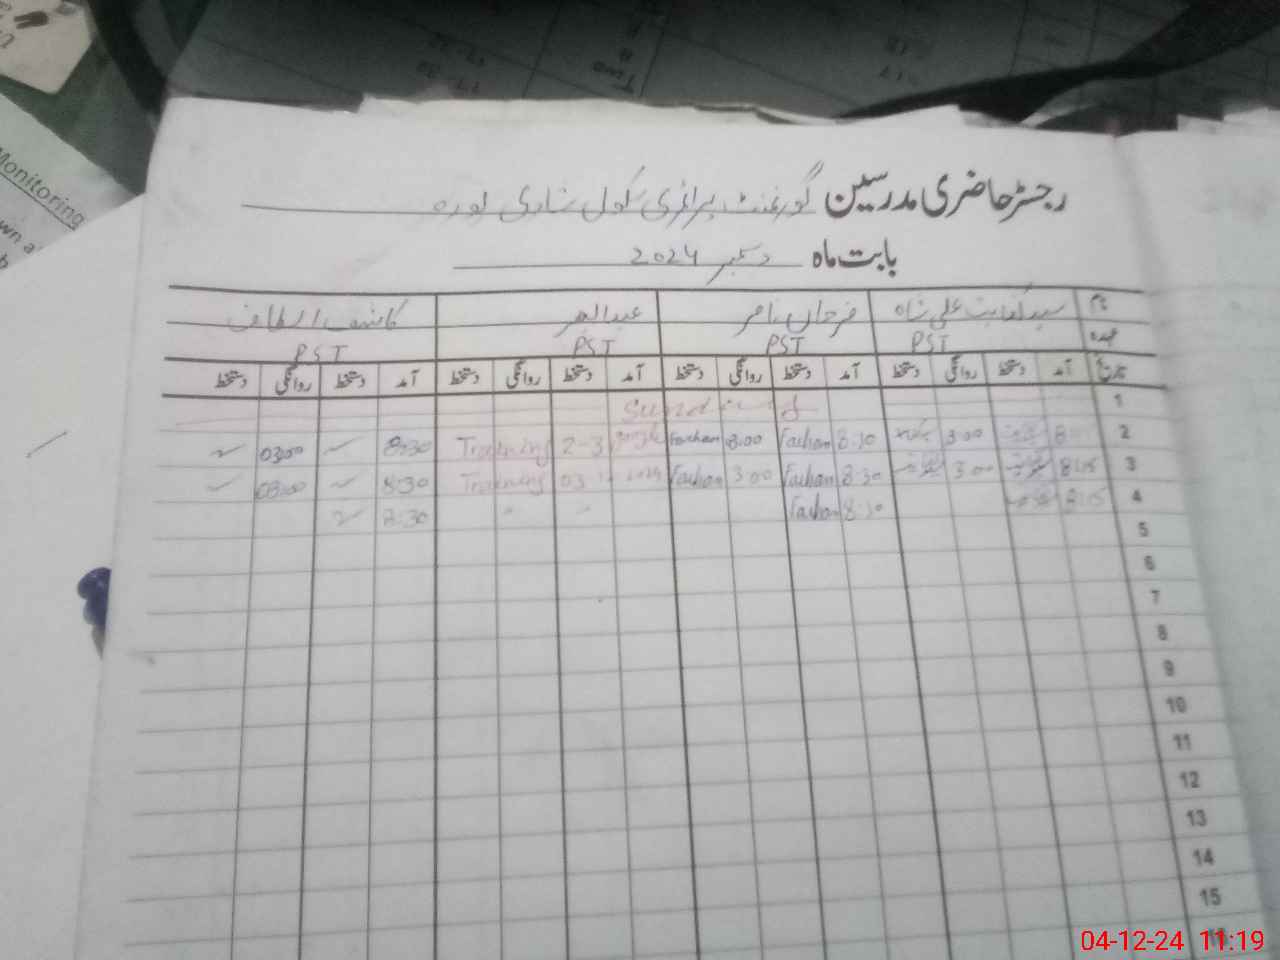 Monitoring
رجسٹر حاضری مدرسین گورنمنٹ پرائمری سکول شادی پورہ
بابت ماہ دسمبر 2024
نام سید لیاقت علی شاہ فرحان ناصر کاشف الطاف
عہدہ PST PST PST PST
تاریخ آمد دستخط روانگی دستخط آمد دستخط روانگی دستخط آمد دستخط روانگی دستخط آمد دستخط روانگی دستخط
1 Sunday
2 3:00 8:30 Farhan 3:00 Farhan Training 2-3 8:30 03:00
3 8:15 3:00 8:30 Farhan 3:00 Farhan Training 03 8:30 03:00
4 8:15 8:30 Farhan 8:30
5
6
7
8
9
10
11
12
13
14
15
16
04-12-24 11:19